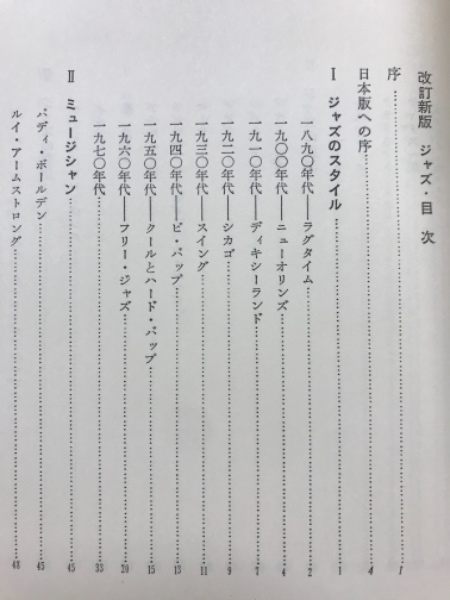 改訂新版 ジャズ・目次
序……1
日本版への序……4
I ジャズのスタイル……1
一八九〇年代――ラグタイム……2
一九〇〇年代――ニューオリンズ……4
一九一〇年代――ディキシーランド……7
一九二〇年代――シカゴ……9
一九三〇年代――スイング……11
一九四〇年代――ビ・バップ……13
一九五〇年代――クールとハード・バップ……15
一九六〇年代――フリー・ジャズ……20
一九七〇年代……33
II ミュージシャン……45
バディ・ボールデン……45
ルイ・アームストロング……48